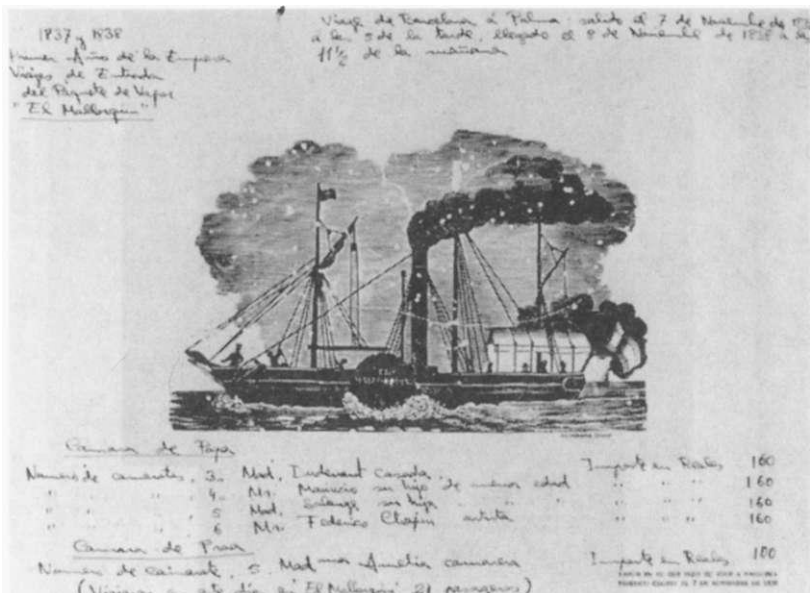 1837 y 1838
Primer Año de la Empresa
Viajes de Entrada
del Paquete de Vapor
"El Mallorquin"
Viaje de Barcelona à Palma: salido el 7 de Noviembre de
a las 5 de la tarde, llegado el 8 de Noviembre de 1838 a las
11 1/2 de la mañana
Camara de Popa
Numero de camarotes, 3. Mad. Dudevant Casada, Importe en Reales 160
" " " , 4. Mr. Mauricio su hijo de menor edad " " " 160
" " " , 5 Mad. Solange su hija " " " " " 160
" " " , 6 Mr. Federico Chopin artista " " " 160
Camara de Proa
Numero de camarote, 5. Amelia camarera Importe en Reales 100
(Viajaron en este dia en "El Mallorquin" 21 pasajeros)